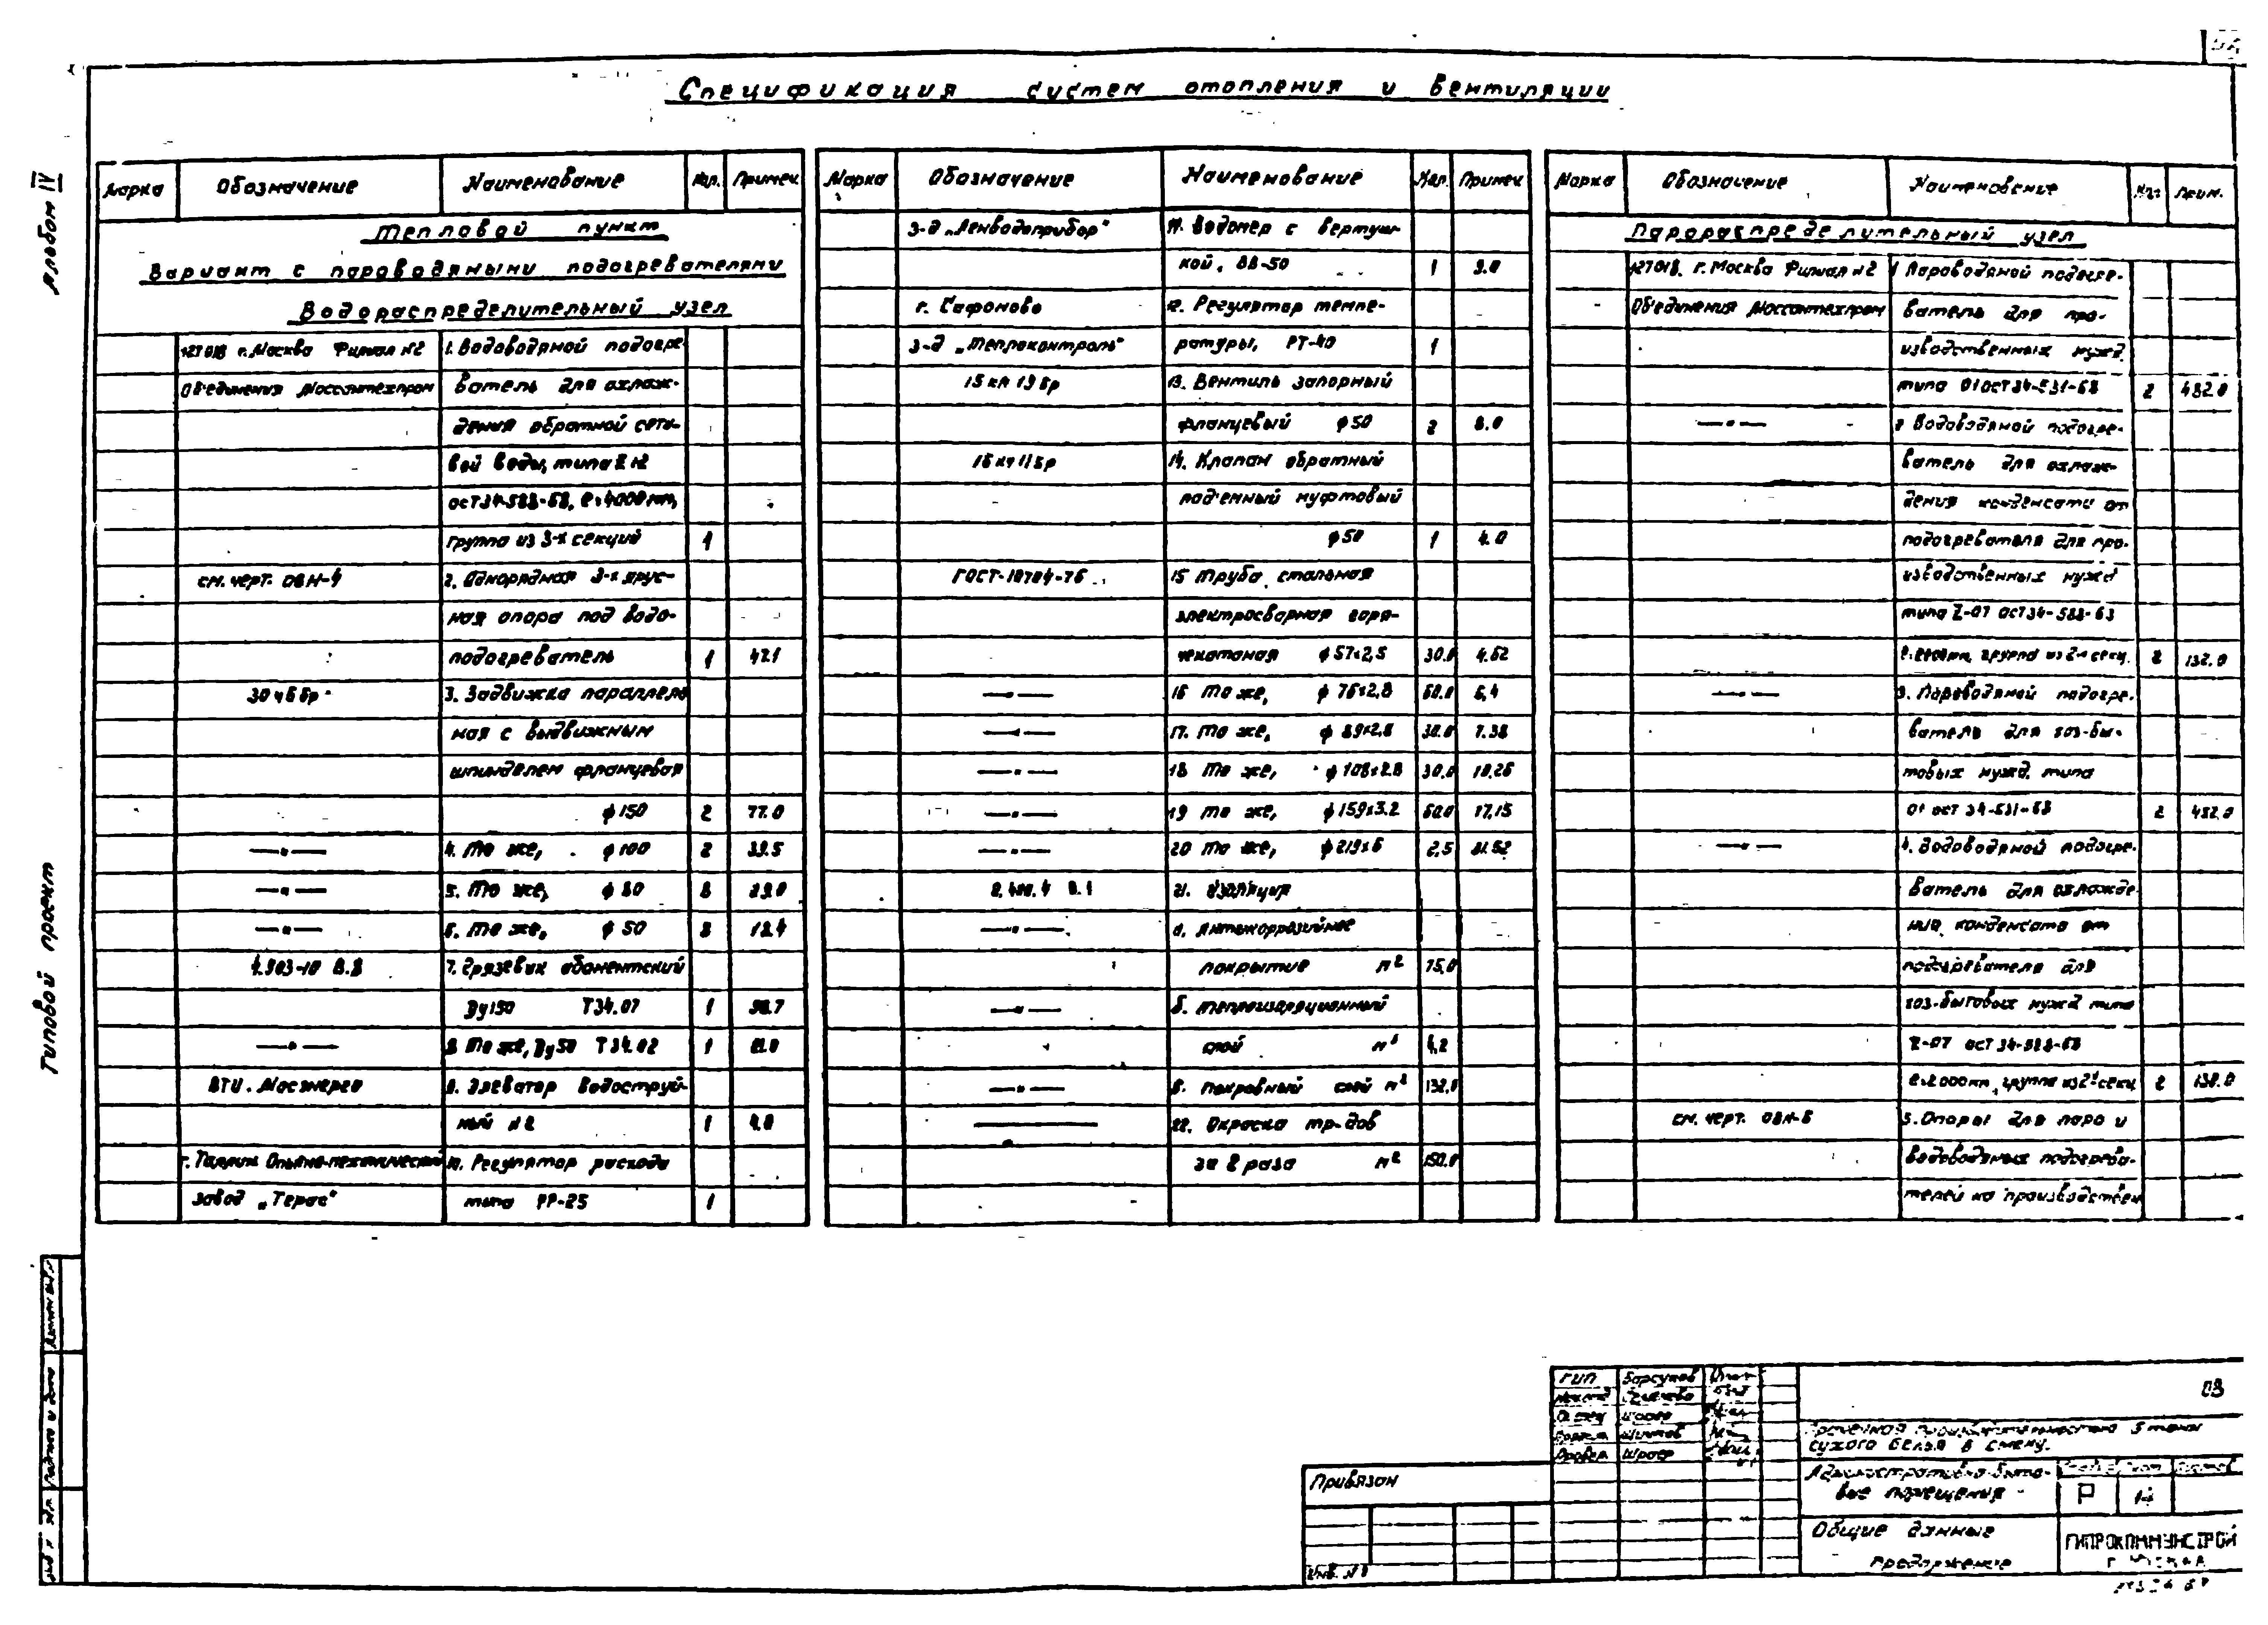 Спецификация систем отопления и вентиляции
Альбом IV
Типовой проект
Марка Обозначение Наименование Кол. Примеч
Тепловой пункт
Вариант с пароводяными подогревателями
Водораспределительный узел
127018 г. Москва Филиал №2 1. Водоводяной подогре
Объединения Моссантехпром ватель для охлаж-
дения обратной сете-
вой воды, типа
группа из 3-х секций 1
см. черт. ОВН-4 2. Однорядная 3-х ярус-
ная опора под водо-
подогреватель 1 42.1
30ч6бр 3. Задвижка параллель
ная с выдвижным
шпинделем фланцевая
ф150 2 77.0
—"— 4. То же, ф100 2 39.5
—"— 5. То же, ф80 8 29.0
—"— 6. То же, ф50 8 18.4
4.903-10 В.8 7. Грязевик абонентский
Ду150 Т34.07 1
—"— 8 То же, Ду50 Т34.02 1
ВТИ. Мосэнерго 9. Элеватор водоструй-
ный №2 1
г. Таллин Опытно-механический 10. Регулятор расхода
завод „Терас" типа РР-25 1
Марка Обозначение Наименование Кол. Примеч
З-д „Ленводоприбор" 11. Водомер с вертуш-
кой, ВВ-50 1 9.0
г. Сафоново 12. Регулятор темпе-
З-д „Теплоконтроль" ратуры, РТ-40 1
15кч19бр 13. Вентиль запорный
фланцевый ф50 2 8.0
16кч11бр 14. Клапан обратный
подъемный муфтовый
ф50 1 4.0
ГОСТ-10704-76 15 Труба стальная
электросварная горя-
чекатаная ф57х2,5 30.0 4.62
—"— 16 То же, ф76х2,8 60.0 6,4
—"— 17. То же, ф89х2,8 30.0 7.38
—"— 18 То же, ф108х2.8 30,0 10.26
—"— 19 То же, ф159х3.2 60.0 17,15
—"— 20 То же, ф219х6 2,5 31.52
2.400.4 В.1 21. Изоляция
—"— а. Антикоррозийное
покрытие м² 75,0
—"— б. теплоизоляционный
слой м³ 4,2
—"— в. Покровный слой м² 132,0
22. Окраска тр-дов
за 2 раза м² 150.0
Марка Обозначение Наименование Кол. Прим.
Парораспределительный узел
127018. г. Москва Филиал №2 1 Пароводяной подогре-
Объединения Моссантехпром ватель для про-
изводственных нужд
типа 01 ОСТ34-531-68 2 432.0
—"— 2 Водоводяной подогре-
ватель для охлаж-
дения конденсата от
подогревателя для про-
изводственных нужд
типа
группа из 2х секц. 2 132.0
—"— 3. Пароводяной подогре-
ватель для хоз-бы-
товых нужд типа
01 ОСТ 34-531-68 2 432.0
—"— 4. Водоводяной подогре-
ватель для охлажде
ния конденсата от
подогревателя для
хоз-бытовых нужд типа
ℓ=2000мм, группа из 2х секц 2 132.0
см. черт. ОВН-5 5. Опоры для паро и
водоводяных подогрева-
телей на производствен
ГИП Барсуков
Шраер
Провер Шраер
ОВ
Прачечная производительностью 5 тонн
сухого белья в смену.
Административно-быто-
вые помещения
Р 14
Общие данные
продолжение
ГИПРОКОММУНСТРОЙ
г. Москва
Привязан
Инв. №